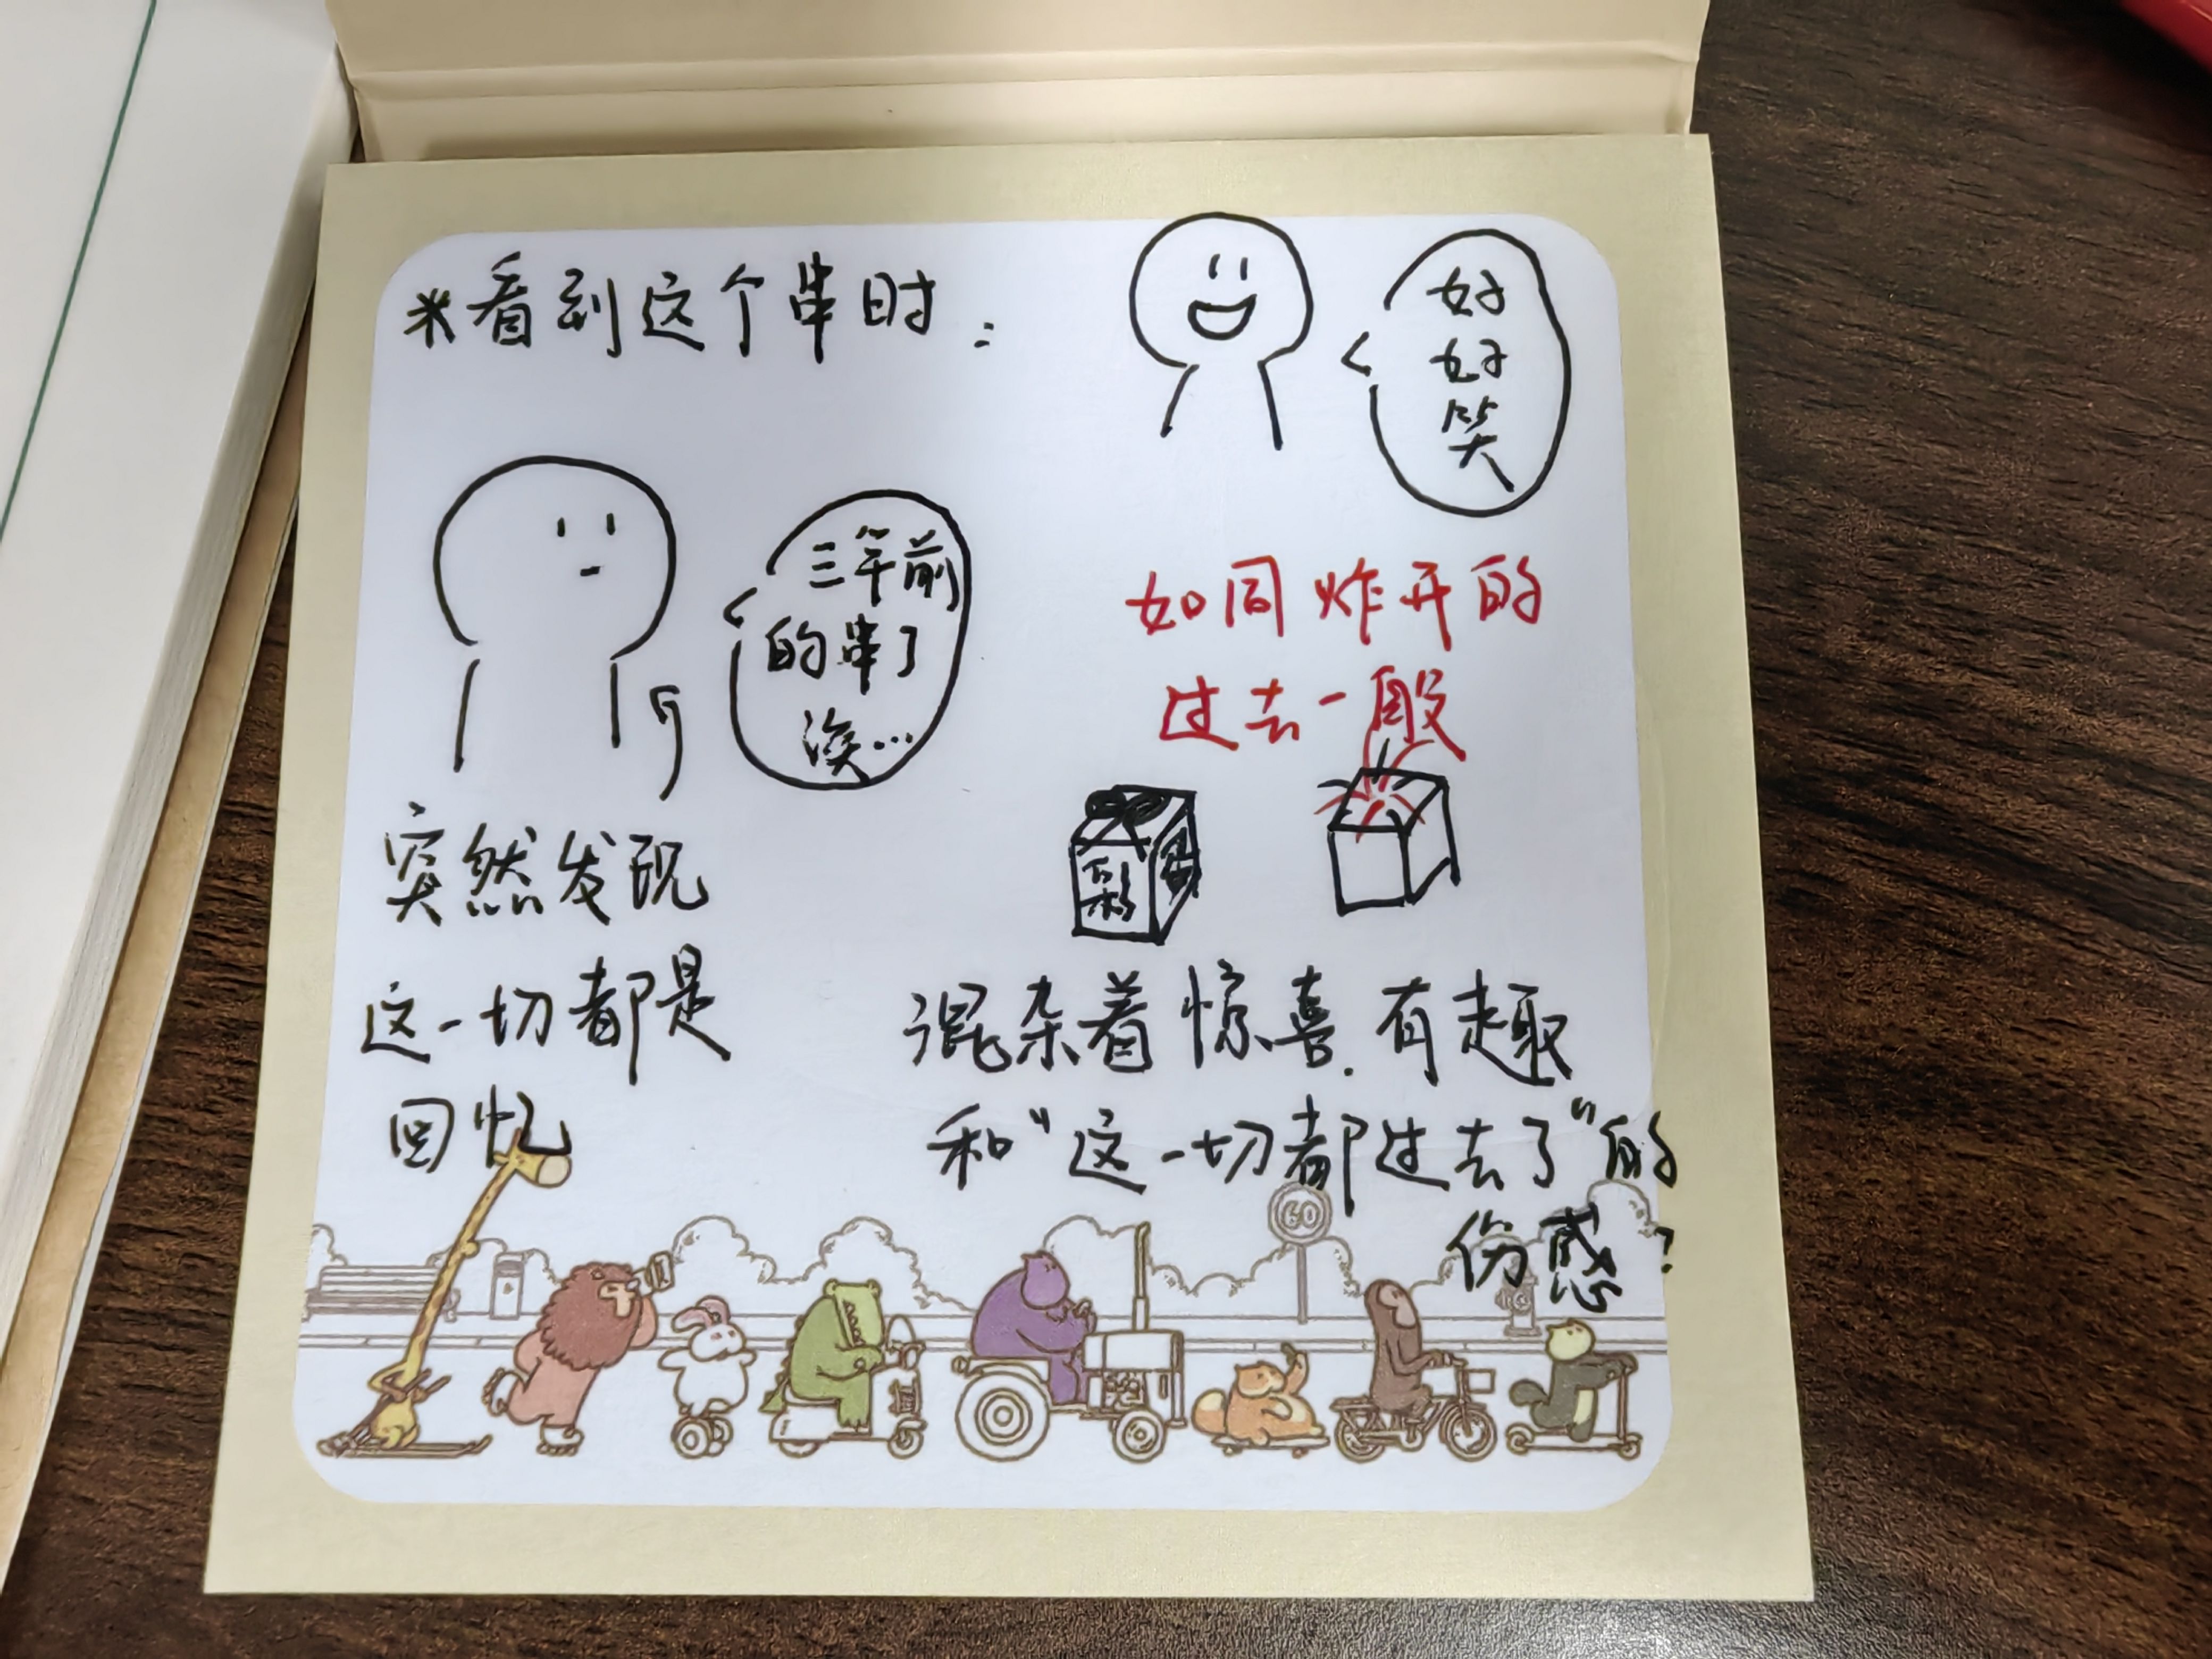 *看到这个串时：
好
好
笑
三年前
的串了
涣…
突然发现
这一切都是
回忆
如同炸开的
过去一般
混杂着惊喜.有趣
和“这一切都过去了”的
伤感？
60